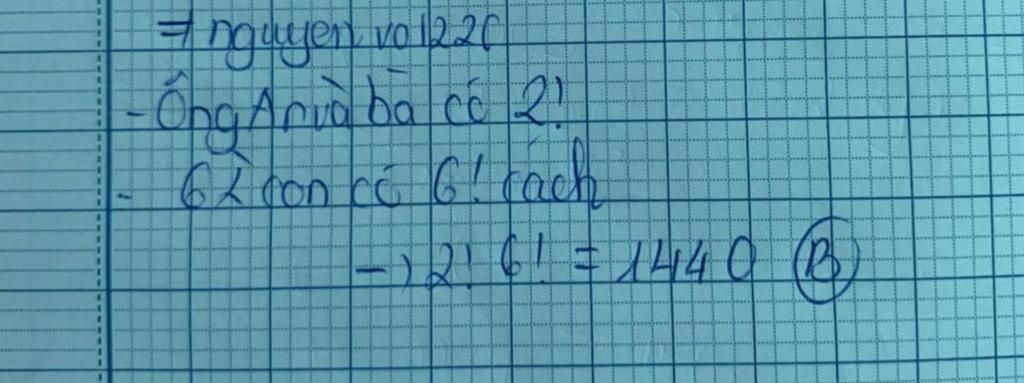 ⇒ nguyen.vo1220
- Ông An và bà có 2!
- 6 con có 6! cách
→ 2! 6! = 1440 (B)